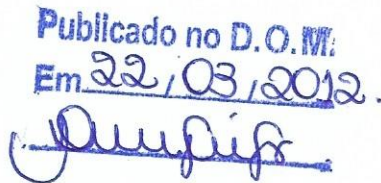 Publicado no D.O.M.
Em 22/03/2012.